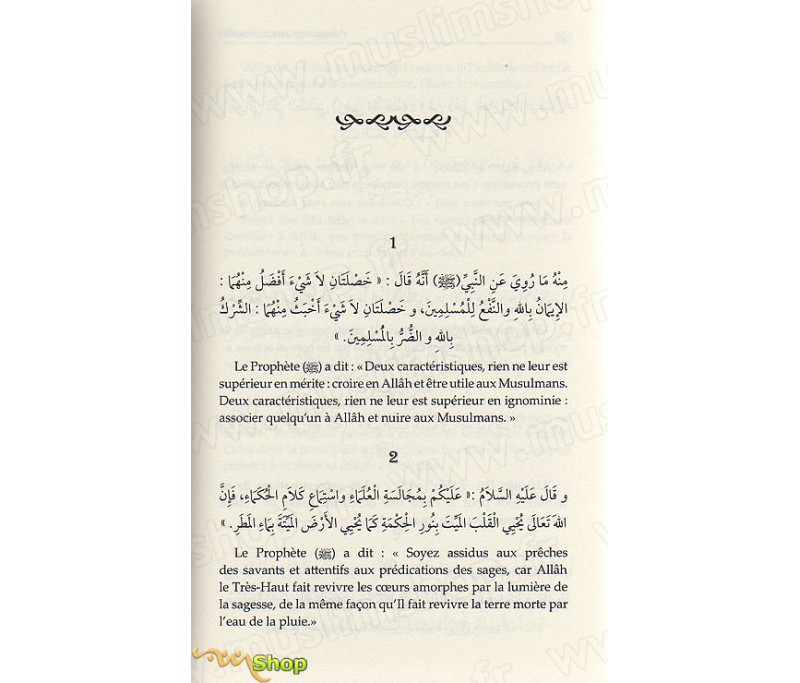 1
مِنْهُ مَا رُوِيَ عَنِ النَّبِيِّ(ﷺ) أَنَّهُ قَالَ : « خَصْلَتَانِ لاَ شَيْءَ أَفْضَلُ مِنْهُمَا :
الإِيمَانُ بِاللهِ والنَّفْعُ لِلْمُسْلِمِينَ، و خَصْلَتَانِ لاَ شَيْءَ أَخْبَثُ مِنْهُمَا : الشِّرْكُ
بِاللهِ و الضُّرُّ بِالْمُسْلِمِينَ. »
Le Prophète (ﷺ) a dit : « Deux caractéristiques, rien ne leur est
supérieur en mérite : croire en Allâh et être utile aux Musulmans.
Deux caractéristiques, rien ne leur est supérieur en ignominie :
associer quelqu'un à Allâh et nuire aux Musulmans. »
2
و قَالَ عَلَيْهِ السَّلاَمُ :« عَلَيْكُمْ بِمُجَالَسَةِ الْعُلَمَاءِ واسْتِمَاعِ كَلاَمِ الْحُكَمَاءِ، فَإِنَّ
اللهَ تَعَالَى يُحْيِي الْقَلْبَ الْمَيِّتَ بِنُورِ الْحِكْمَةِ كَمَا يُحْيِي الأَرْضَ الْمَيْتَةَ بِمَاءِ الْمَطَرِ. »
Le Prophète (ﷺ) a dit : « Soyez assidus aux prêches
des savants et attentifs aux prédications des sages, car Allâh
le Très-Haut fait revivre les cœurs amorphes par la lumière de
la sagesse, de la même façon qu'Il fait revivre la terre morte par
l'eau de la pluie.»
Shop
www.muslimshop.fr